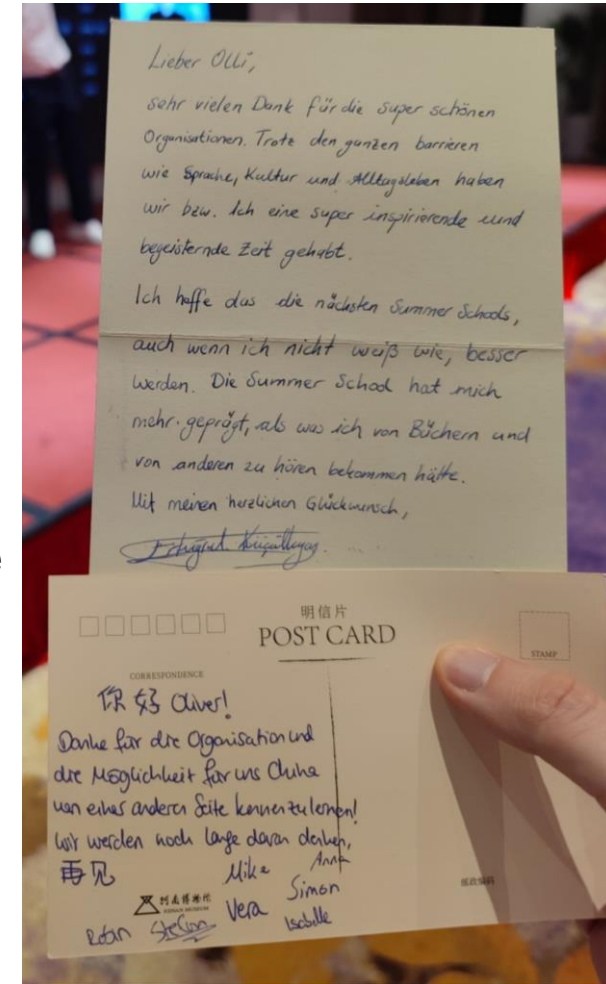 Lieber Olli,
sehr vielen Dank für die super schönen
Organisationen. Trotz den ganzen barrieren
wie Sprache, Kultur und Alltagsleben haben
wir bzw. Ich eine super inspirierende und
begeisternde Zeit gehabt.
Ich hoffe das die nächsten Summer Schools,
auch wenn ich nicht weiß wie, besser
werden. Die Summer School hat mich
mehr geprägt, als was ich von Büchern und
von anderen zu hören bekommen hätte.
Mit meinen herzlichen Glückwunsch,
明信片
POST CARD
STAMP
CORRESPONDENCE
你好 Oliver!
Danke für die Organisation und
die Möglichkeit für uns China
von einer anderen Seite kennenzulernen!
Wir werden noch lange daran denken,
再见
Mike Anna
Vera Simon
Robin Isabelle
河南博物院
HENAN MUSEUM
邮政编码